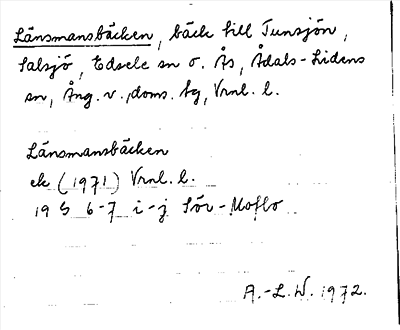 Länsmansbäcken, bäck till Tunsjön,
Salsjö, Edsele sn o. Ås, Ådals-Lidens
sn, Ång. v., doms. tg, Vrnl. l.
Länsmansbäcken
ek (1971) Vrnl. l.
19 G 6-7 i-j Sör-Moflo
A.-L. W. 1972.